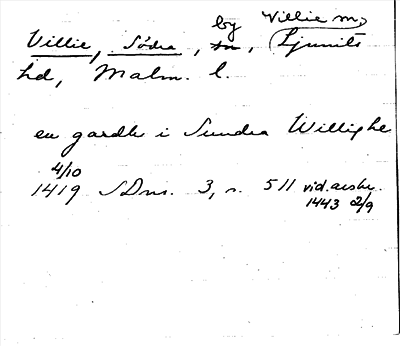 Villie, Södra, by, Villie sn,
Ljunits
hd, Malm. l.
en gardh i Sundra Willighe
4/10
1419 SDns. 3, s. 511 vid. avskr.
1443 2/9